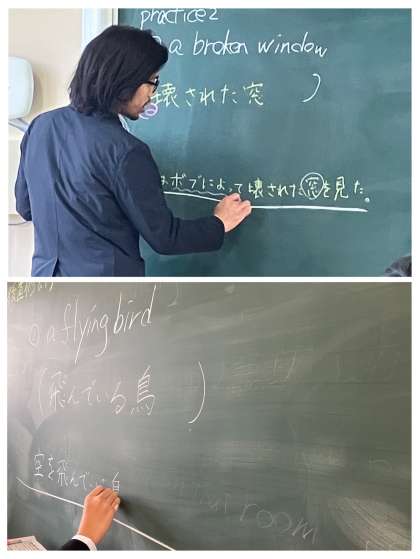 practice2
a broken window
壊された窓 )
ボブによって壊された窓を見た。
a flying bird
(飛んでいる鳥 )
空を飛んでいる鳥
room